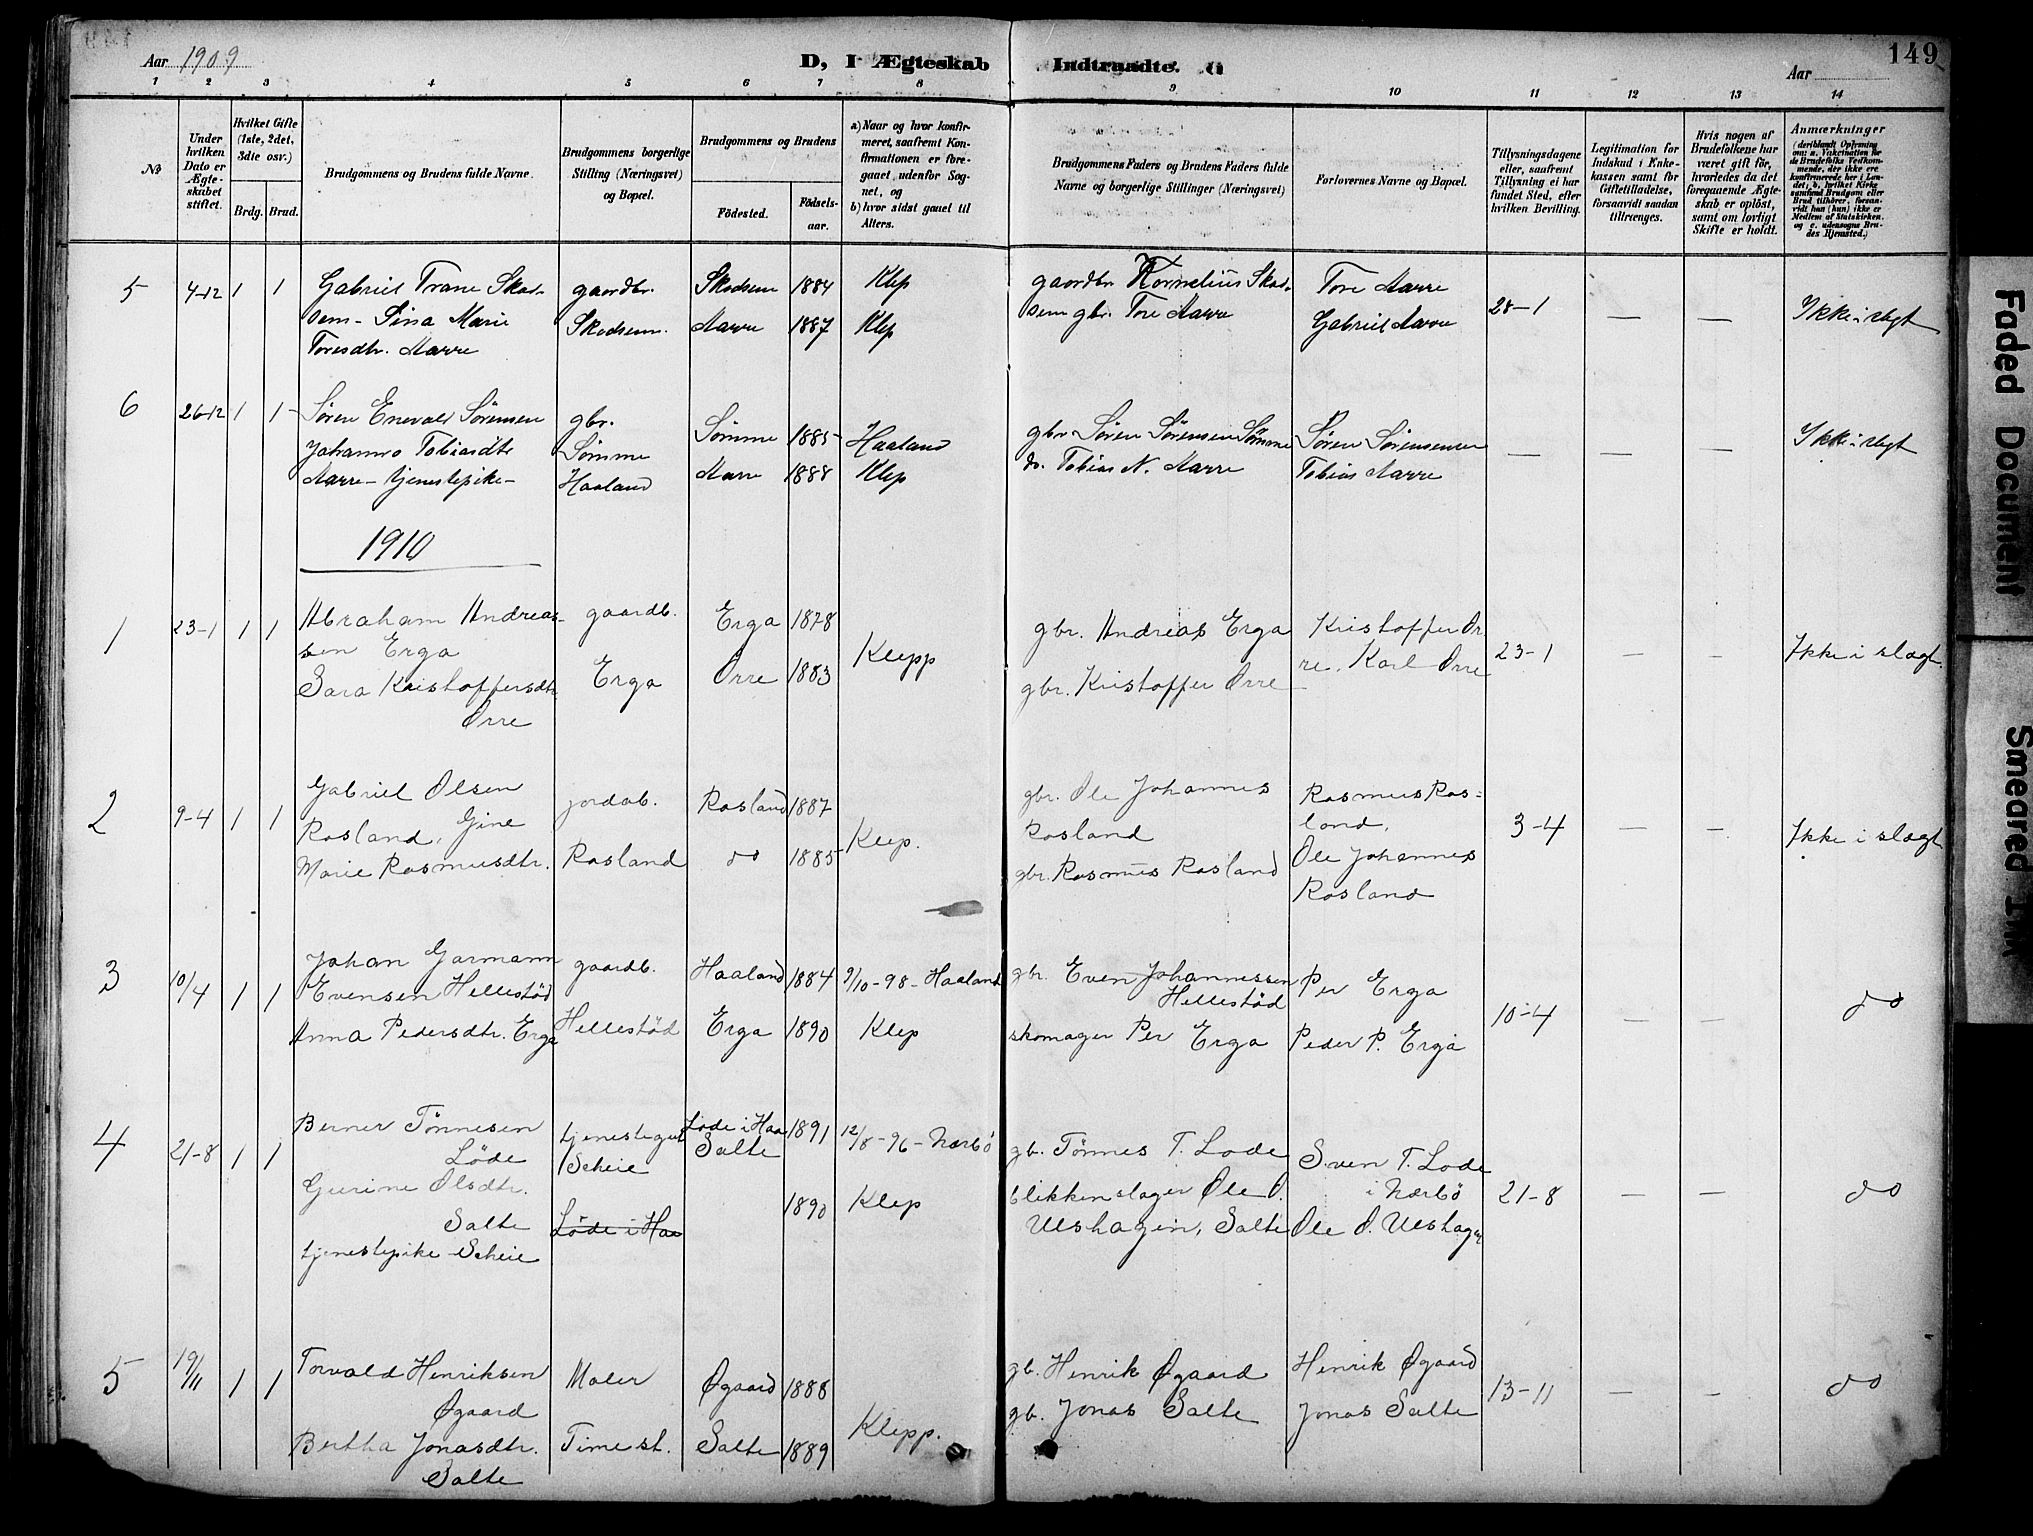 149
Aar 1909
D, I Ægteskab Indtraadte.
Aar
1 2 3 4 5 6 7 8 9 10 11 12 13 14
No
Under hvilken Dato er Ægteskabet stiftet.
Hvilket Gifte (1ste, 2det, 3die osv.)
Brdg. Brud.
Brudgommens og Brudens fulde Navne.
Brudgommens borgerlige Stilling (Næringsvei) og Bopæl.
Brudgommens og Brudens
Fødested.
Fødselsaar.
a) Naar og hvor konfirmeret, saafremt Konfirmationen er foregaaet udenfor Sognet, og
b) hvor sidst gaaet til Alters.
Brudgommens Faders og Brudens Faders fulde Navne og borgerlige Stillinger (Næringsvei)
Forlovernes Navne og Bopæl.
Tillysningsdagene eller, saafremt Tillysning ei har fundet Sted, efter hvilken Bevilling.
Legitimation for Indskud i Enkekassen samt for Giftetilladelse, forsaavidt saadan tiltrænges.
Hvis nogen af Brudefolkene har været gift før, hvorledes da det foregaaende Ægteskab er opløst, samt om lovligt Skifte er holdt.
Anmærkninger
(deriblandt Oplysning om: a. Vakcination for de Brudefolks Vedkommende, der ikke ere konfirmerede her i Landet; b. hvilket Kirkesamfund Brudgom eller Brud tilhører, forsaavidt han (hun) ikke er Medlem af Statskirken, og c. udensogns Brudes Hjemsted.)
5 4-12 1 1 Gabriel Trane Skad- gaardbr. Skadsem 1884 Klep gaardbr Kornelius Skad- Tore Aarre 28-1 — — Ikke i slegt
sem - Sina Marie Skadsem. Aarre 1887 Klep sem gbr. Tore Aarre Gabriel Aarre
Toresdtr. Aarre
6 26-12 1 1 Søren Enevald Sørensen gbr. Sømme 1885 Haaland gbr Søren Sørensen Sømme Søren Sørensen — — — Ikke i slegt
Johanna Tobiasdtr Sømme Aarre 1888 Klep do. Tobias N. Aarre Tobias Aarre
Aarre - tjenestepike - Haaland
1910
1 23-1 1 1 Abraham Andreas- gaardb. Erga 1878 Klepp gbr. Andreas Erga Kristoffer Or- 23-1 — — Ikke i slægt.
sen Erga re, Karl Orre
Sara Kristoffersdtr Erga Orre 1883 gbr. Kristoffer Orre
Orre
2 9-4 1 1 Gabriel Olsen jordab. Rosland 1887 Klep. gbr. Ole Johannes Rasmus Ros- 3-4 — — Ikke i slægt
Rosland, Gine Rosland land,
Marie Rasmusdtr. Rosland do 1885 gbr. Rasmus Rosland Ole Johannes
Rosland
3 10/4 1 1 Johan Garmann gaardb. Haaland 1884 9/10-98-Haaland gbr. Even Johannessen Per Erga 10-4 — — do
Evensen Hellestöd Hellestöd
Anna Pedersdtr. Erga Hellestöd Erga 1890 Klep skomager Per Erga Peder P. Erga
4 21-8 1 1 Berner Tönnesen tjenestegut Lode i Haa 1891 12/8-96-Nærbö gb. Tönnes T. Lode Sven T. Lode 21-8 — — do
Löde Scheie Salte i Nærbö
Gurine Olsdtr. 1890 Klep blikkenslager Ole O.
Salte Löde i Haa Ulshagen, Salte Ole O. Ulshagen
tjenestepike Scheie
5 19/11 1 1 Torvald Henriksen Maler Øgaard 1888 Klepp. gb. Henrik Øgaard Henrik Øgaard 13-11 — — do
Øgaard gb. Jonas Salte Jonas Salte
Bertha Jonasdtr. Time st. Salte 1889
Salte
Faded Document
Smeared Ink